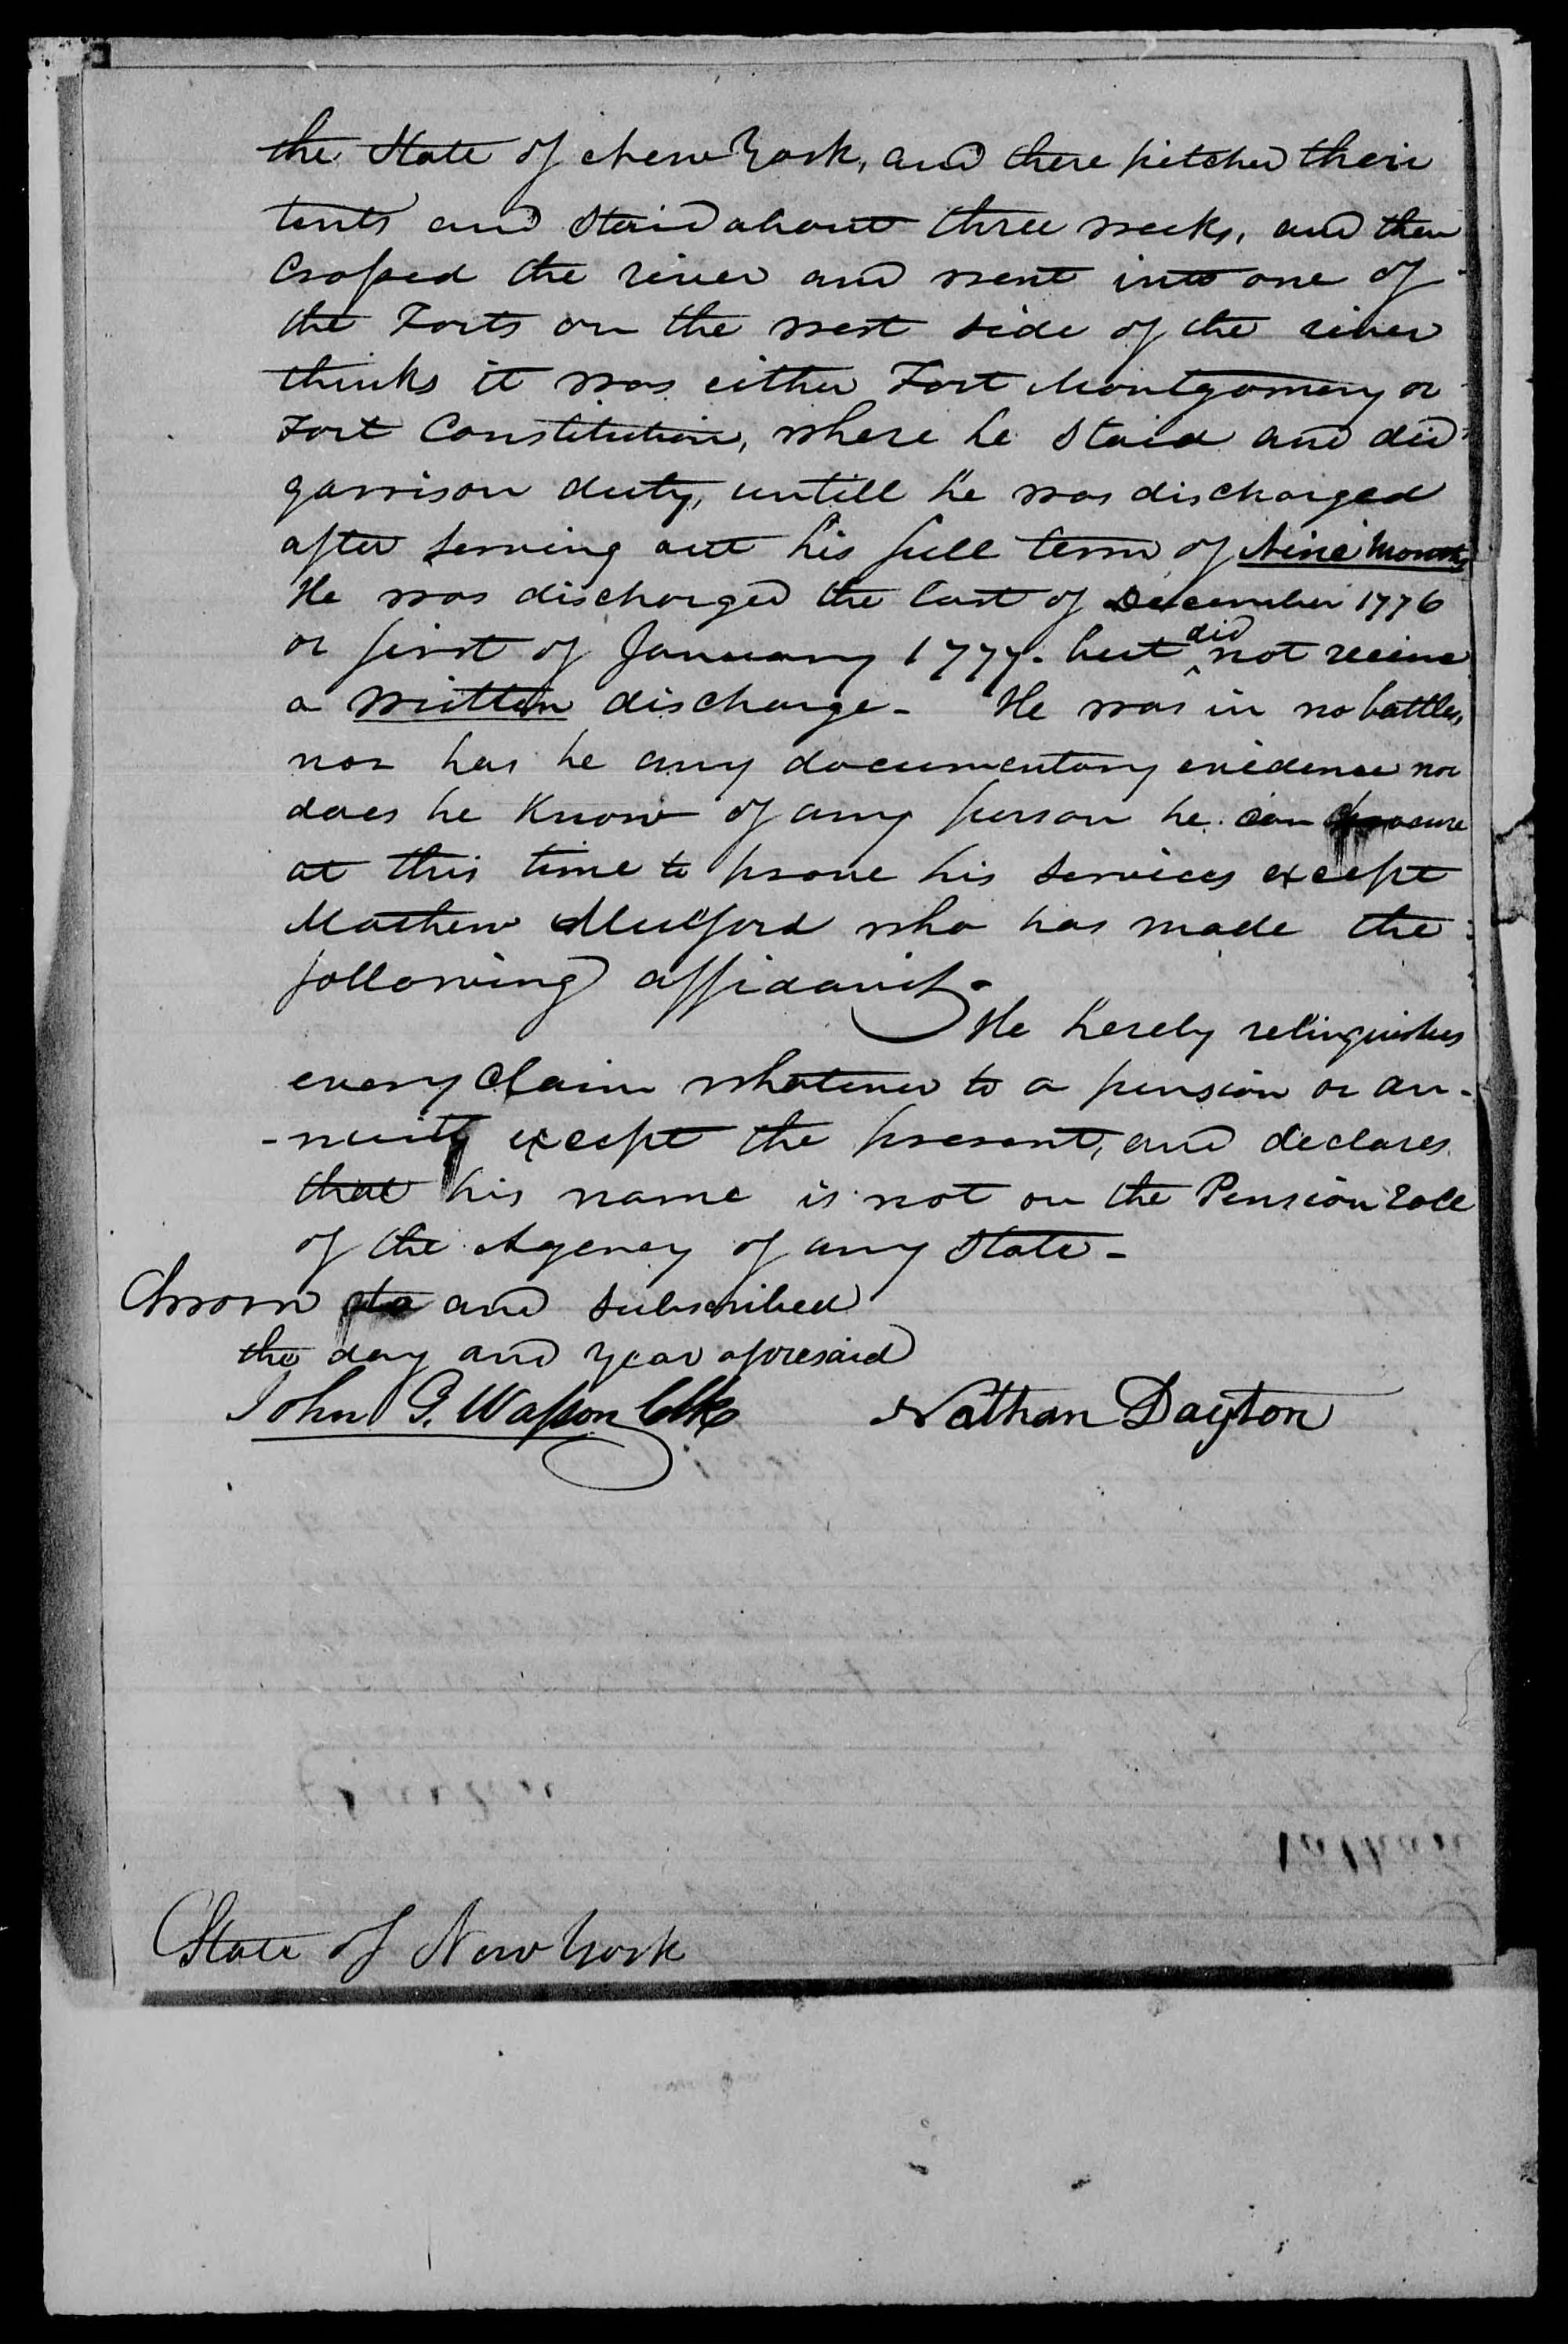 the State of New York, and there pitched their
tents and staid about three weeks, and then
Crossed the river and went into one of
the Forts on the west side of the river
thinks it was either Fort Montgomery or
Fort Constitution, where he staid and did
garrison duty, untill he was discharged
after serving out his full term of Nine Months
He was discharged the last of December 1776
or first of January 1777. but did not receive
a written discharge - He was in no battles,
nor has he any documentary evidence nor
does he know of any person he can procure
at this time to prove his services except
Mathew Mulford who has made the
following affidavit -
He hereby relinquishes
every claim whatever to a pension or an-
-nuity except the present, and declares
that his name is not on the Pension Roll
of the Agency of any State -
Sworn to and subscribed
the day and year aforesaid
John G. Wasson Clk Nathan Dayton
State of New York